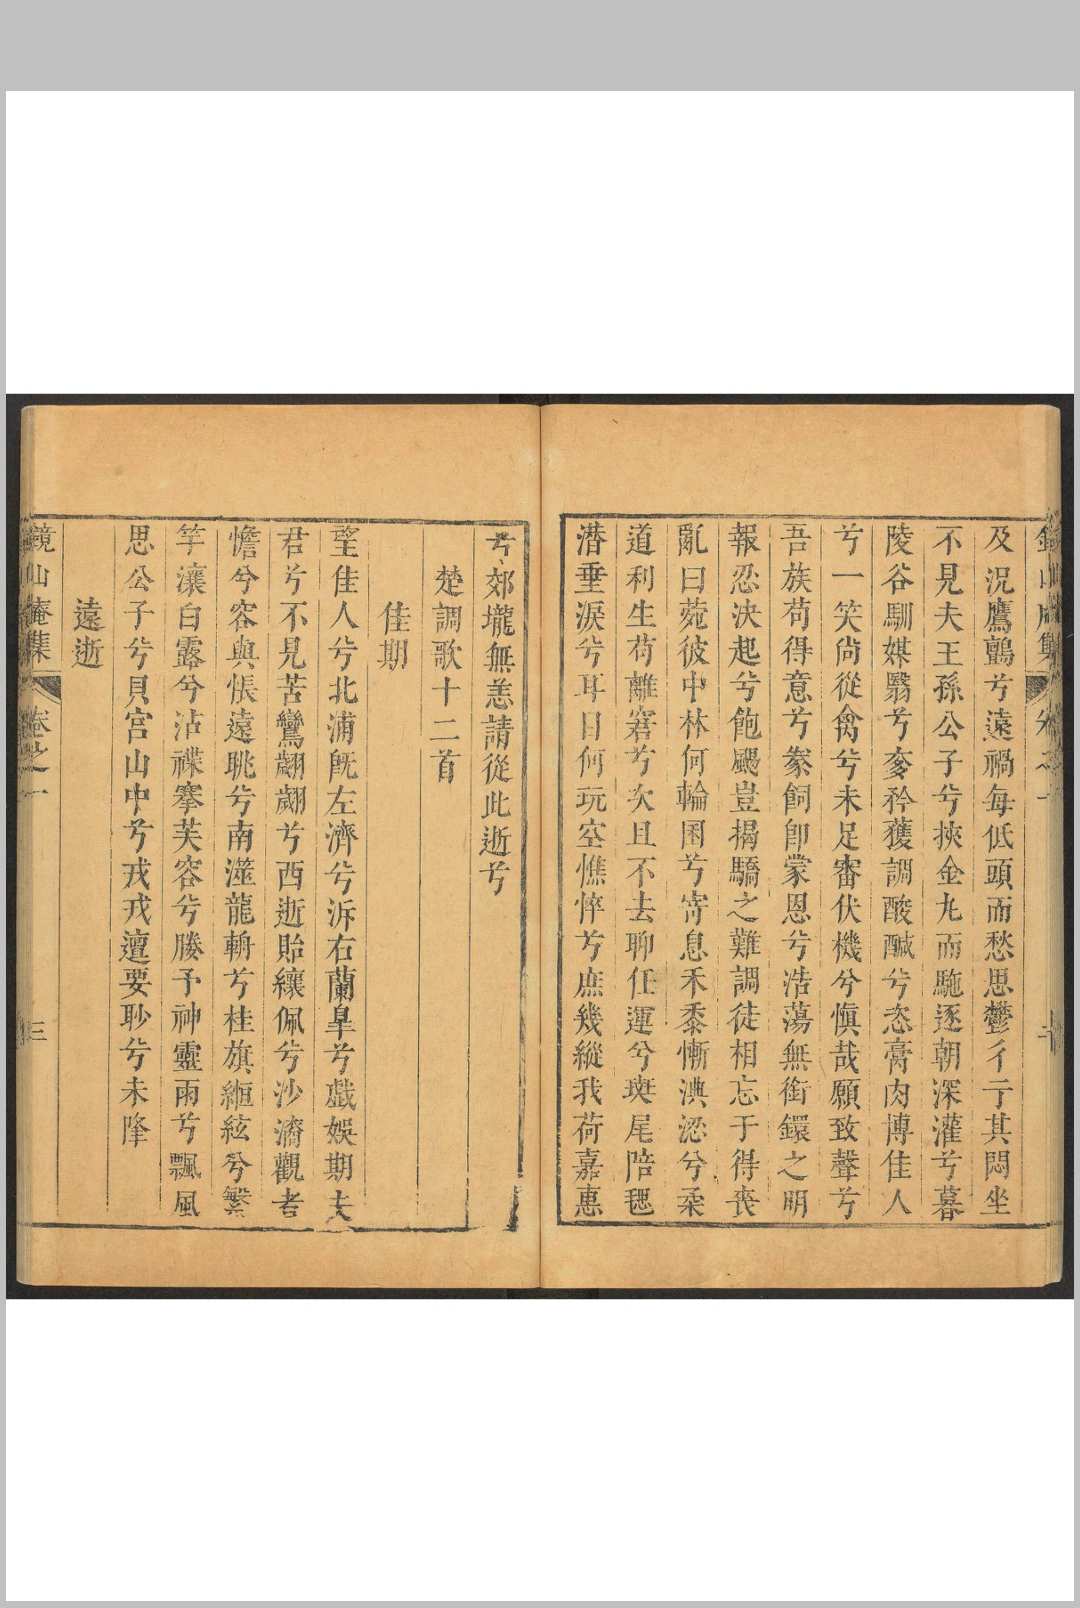 及況鷹鸇兮遠禍每低頭而愁思鬱彳亍其悶坐
不見夫王孫公子兮挾金丸而馳逐朝深灌兮暮
陵谷馴媒翳兮奓矜獲調酸醎兮恣膏肉博佳人
兮一笑尙從禽兮未足審伏機兮愼哉願致聲兮
吾族苟得意兮豢飼卽蒙恩兮浩蕩無銜鐶之明
報忍決起兮飽颺豈揭驕之難調徒相忘于得喪
亂曰菀彼中林何輪囷兮寄息禾黍慚淟涊兮柔
道利生苟離窘兮次且不去聊任運兮斑尾陪毸
潛垂淚兮耳目何玩空憔悴兮庶幾縱我荷嘉惠
兮郊壠無恙請從此逝兮
楚調歌十二首
佳期
望佳人兮北浦旣左濟兮泝右蘭皐兮戲娛期夫
君兮不見苦鸞翽翽兮西逝貽纕佩兮沙濱觀者
憺兮容與悵遠眺兮南澨龍輈兮桂旗緪絃兮繁
竽瀼白露兮沾褋搴芙容兮媵予神靈雨兮飄風
思公子兮貝宮山中兮戎戎邅要眇兮未降
遠逝
鏡山庵集
卷之一
三